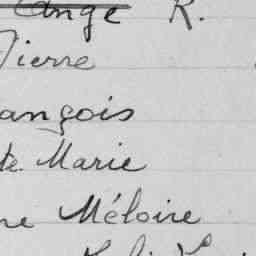 Ange R.
Pierre
ançois
te Marie
ne Méloire